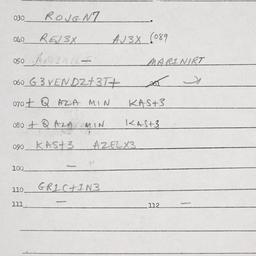 030 ROJGN7
040 REJ3X AJ3X (089
050 — MARINIRT
060 G3VENDZ+3T+
070 + Q AZA MIN KAS+3
080 + Q AZA MIN KAS+3
090 KAS+3 AZELX3
100 —
110 GR1C+IN3
111 — 112 —